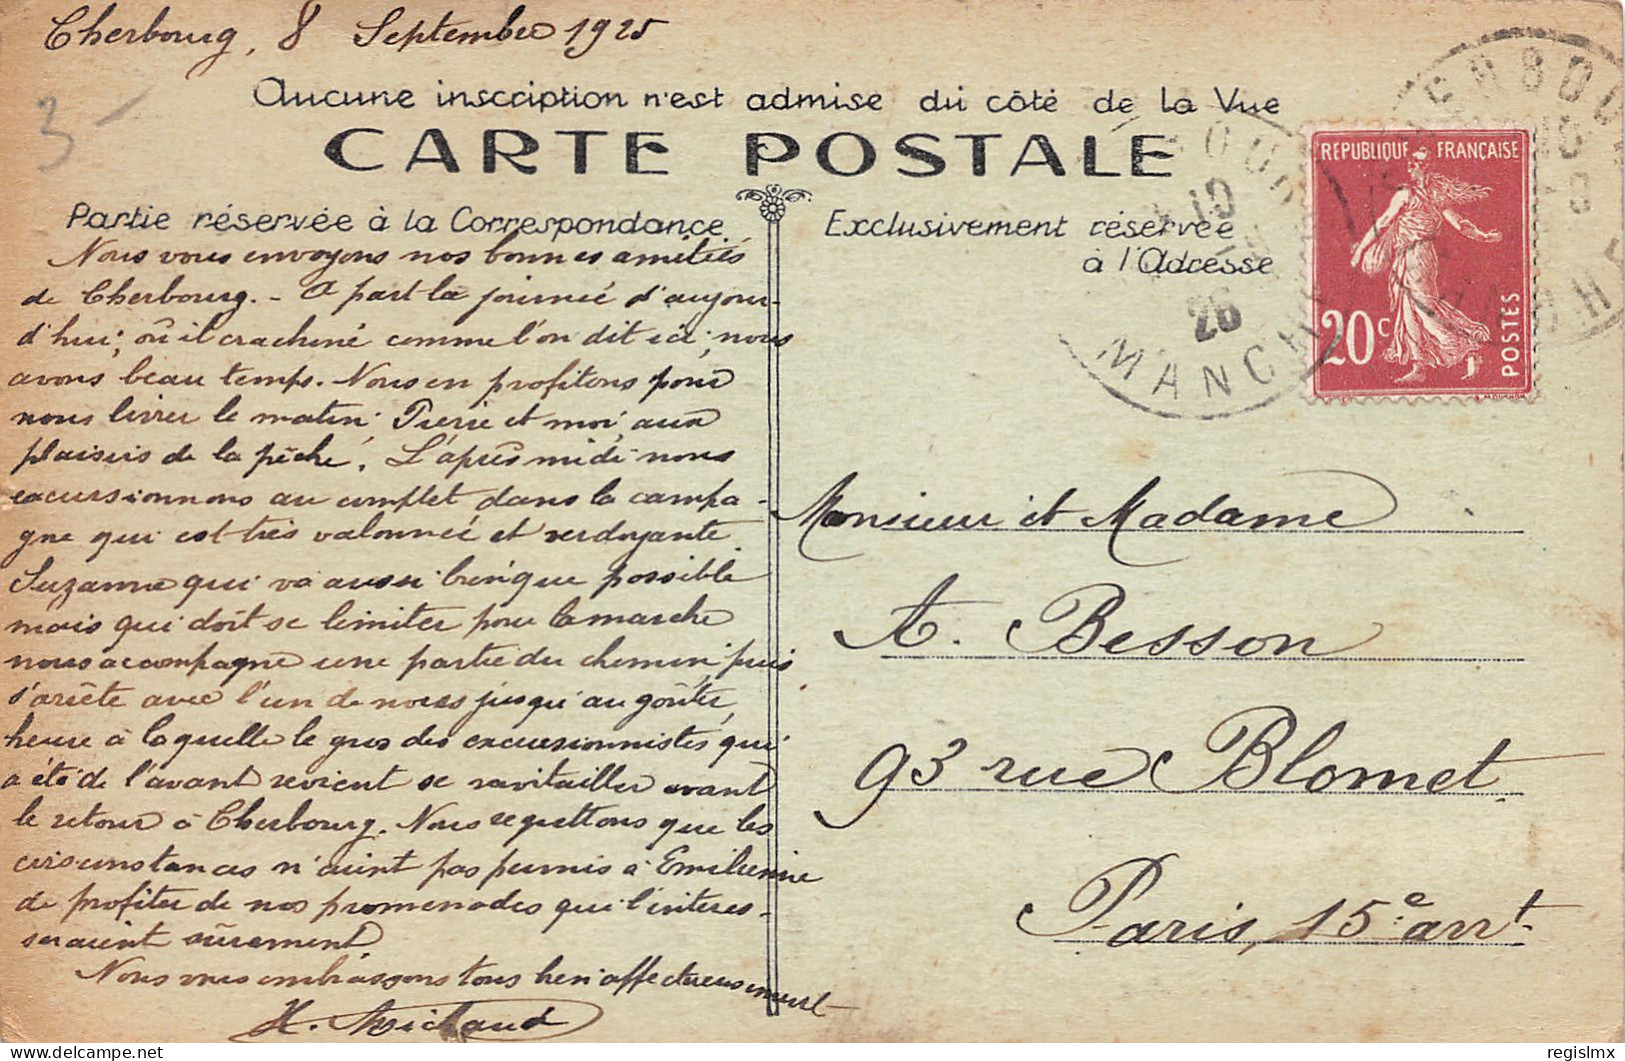 Cherbourg, 8 Septembre 1925
3-
Aucune inscription n'est admise du côté de la Vue
CARTE POSTALE
Partie réservée à la Correspondance
Exclusivement réservée
à l'Adresse
REPUBLIQUE FRANÇAISE
20c
POSTES
26
MANCHE
Nous vous envoyons nos bonnes amitiés
de Cherbourg. - A part la journée d'aujour-
d'hui, où il crachine comme l'on dit ici, nous
avons beau temps. Nous en profitons pour
nous livrer le matin, Pierre et moi, aux
plaisirs de la pêche. L'après midi nous
excursionnons au complet dans la campa-
gne qui est très valonnée et verdoyante
Suzanne qui va aussi bien que possible
mais qui doit se limiter pour la marche
nous accompagne une partie du chemin, puis
s'arrête avec l'un de nous jusqu'au goûter,
heure à laquelle le gros des excursionnistes qui
a été de l'avant revient se ravitailler avant
le retour à Cherbourg. Nous regrettons que les
circonstances n'aient pas permis à Emilienne
de profiter de nos promenades qui l'interes-
seraient sûrement
Nous vous embrassons tous bien affectueusement
H. Michaud
Monsieur et Madame
A. Besson
93 rue Blomet
Paris, 15e arrt.
regislmx